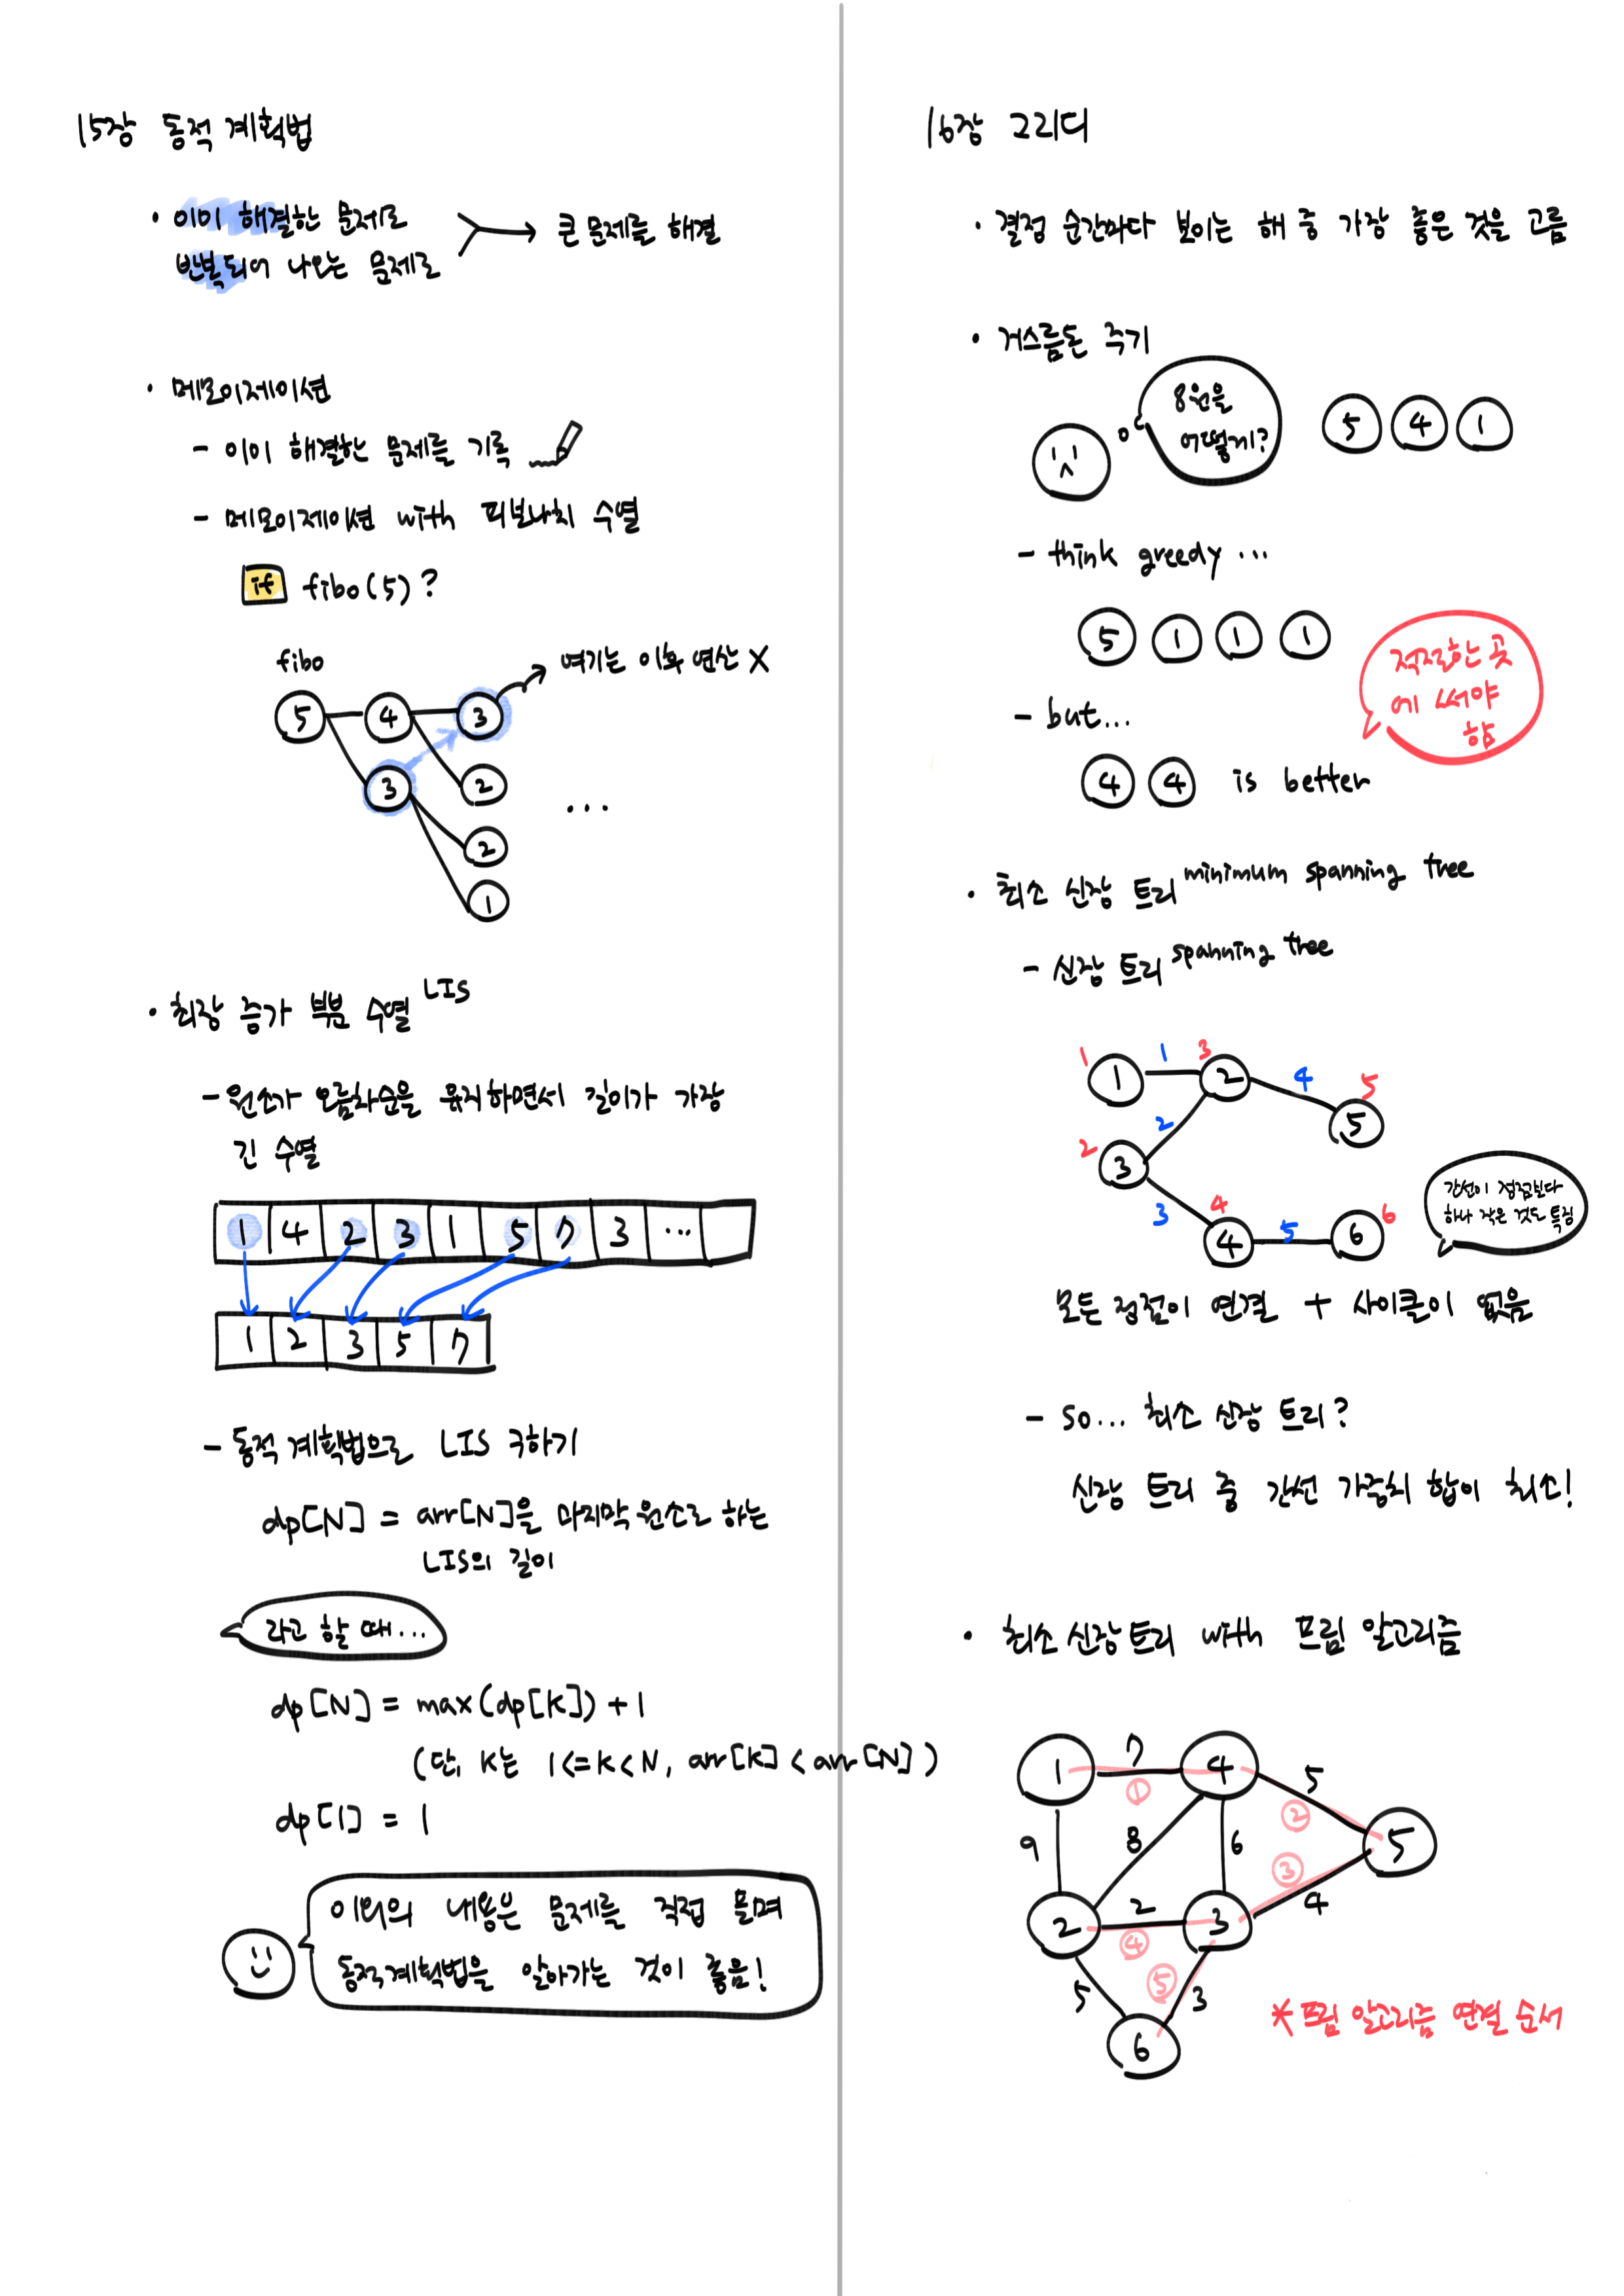 15장 동적 계획법
• 이미 해결한 문제로
반복되어 나오는 문제로
큰 문제를 해결
• 메모이제이션
- 이미 해결한 문제를 기록
- 메모이제이션 with 피보나치 수열
if fibo(5)?
fibo
여기는 이후 연산 X
5 4 3
3 2
...
2
1
• 최장 증가 부분 수열 LIS
- 원소가 오름차순을 유지하면서 길이가 가장
긴 수열
1 4 2 3 1 5 7 3 ...
1 2 3 5 7
- 동적 계획법으로 LIS 구하기
dp[N] = arr[N]을 마지막 원소로 하는
LIS의 길이
라고 할 때...
dp[N] = max(dp[K]) + 1
(단, K는 1<=K<N, arr[K] < arr[N])
dp[1] = 1
이외의 내용은 문제를 직접 풀며
동적계획법을 알아가는 것이 좋음!
16장 그리디
• 결정 순간마다 보이는 해 중 가장 좋은 것을 고름
• 거스름돈 주기
8원을
어떻게?
5 4 1
- think greedy ...
5 1 1 1
적절한 곳
에 써야
함
- but...
4 4 is better
• 최소 신장 트리 minimum spanning tree
- 신장 트리 spanning tree
1 1 1 3 2 4 5
5
2 3 2
3 4 4 5 6 6
간선이 정점보다
하나 작은 것도 특징
모든 정점이 연결 + 사이클이 없음
- so... 최소 신장 트리?
신장 트리 중 간선 가중치 합이 최소!
• 최소 신장 트리 with 프림 알고리즘
1 7 4 5
① ②
9 8 6 5
③
2 2 3 4
④
5 ⑤ 3
6
* 프림 알고리즘 연결 순서